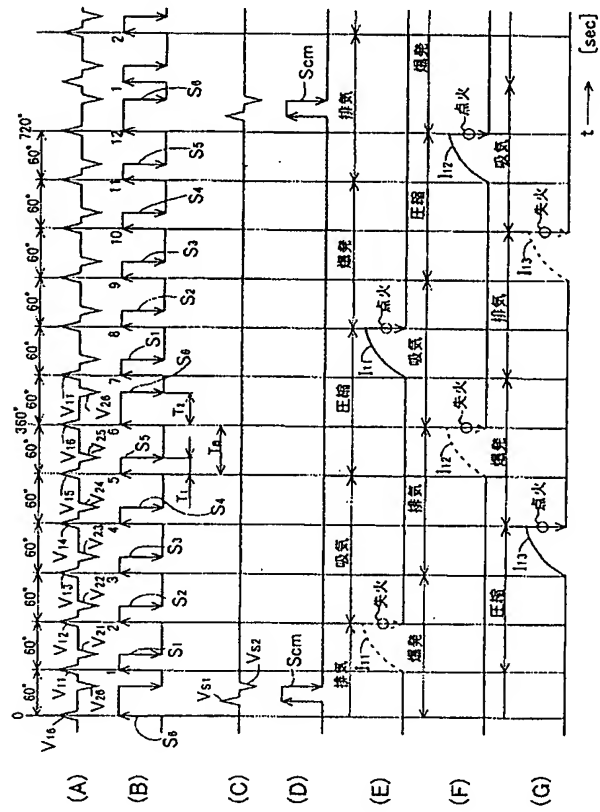 0 60° 60° 60° 60° 60° 60° 360° 60° 60° 60° 60° 60° 60° 720°
(A) V16 V11 V26 V12 V21 V13 V22 V14 V23 V15 V24 V16 V25 V11 V26
(B) 1 2 3 4 5 6 7 8 9 10 11 12 1 2
S6 S1 S2 S3 S4 S5 S6 S1 S2 S3 S4 S5 S6
T1 T2
Tn
(C) Vs1 Vs2
(D) Scm Scm
(E) 排気 吸気 圧縮 爆発 排気
I11 失火 I11 点火
(F) 爆発 排気 吸気 圧縮 爆発
I12 失火 I12 点火
(G) 圧縮 爆発 排気 吸気
I13 点火 I13 失火
t → [sec]